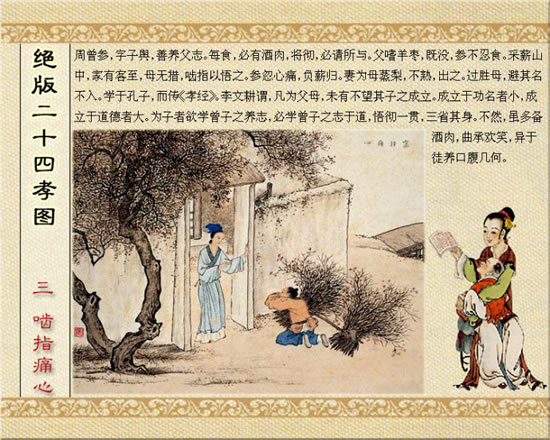 绝版二十四孝图
三 啮指痛心
周曾参，字子舆，善养父志。每食，必有酒肉，将彻，必请所与。父嗜羊枣，既没，参不忍食。采薪山
中，家有客至，母无措，啮指以悟之。参忽心痛，负薪归。妻为母蒸梨，不熟，出之。过胜母，避其名
不入。学于孔子，而传《孝经》。李文耕谓，凡为父母，未有不望其子之成立。成立于功名者小，成
立于道德者大。为子者欲学曾子之养志，必学曾子之志于道，悟彻一贯，三省其身。不然，虽多备
酒肉，曲承欢笑，异于
徒养口腹几何。